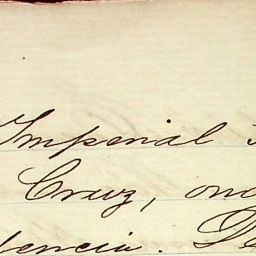 Imperial
Cruz, ond
dencia. De